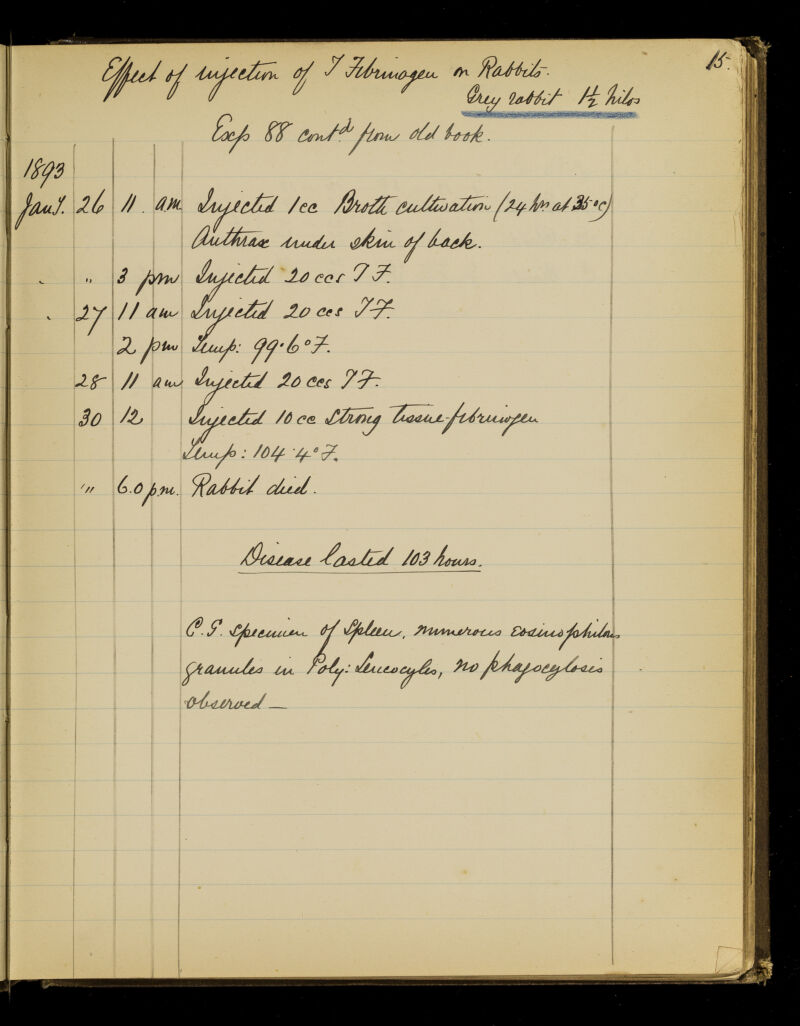 15.
Effect of injection of T Fibrinogen on Rabbits.
Grey rabbit 1½ kilos
Exp 88 contd from old book.
1893
Jany. 26 11 am Injected 1cc Broth cultivation (24 hrs at 35°c)
Anthrax under skin of back.
" " 3 pm Injected 20 ccs T F.
" 27 11 am Injected 20 ccs T F.
2 pm Temp: 99.6° F.
28 11 am Injected 20 ccs T F.
30 12 Injected 10 cc Strong tissue-fibrinogen
Temp: 104.4° F.
" 6.0 pm. Rabbit died.
Disease lasted 103 hours.
C.G. specimen of Spleen, numerous eosinophilous
granules in Poly: Leucocytes, no phagocytosis
observed —